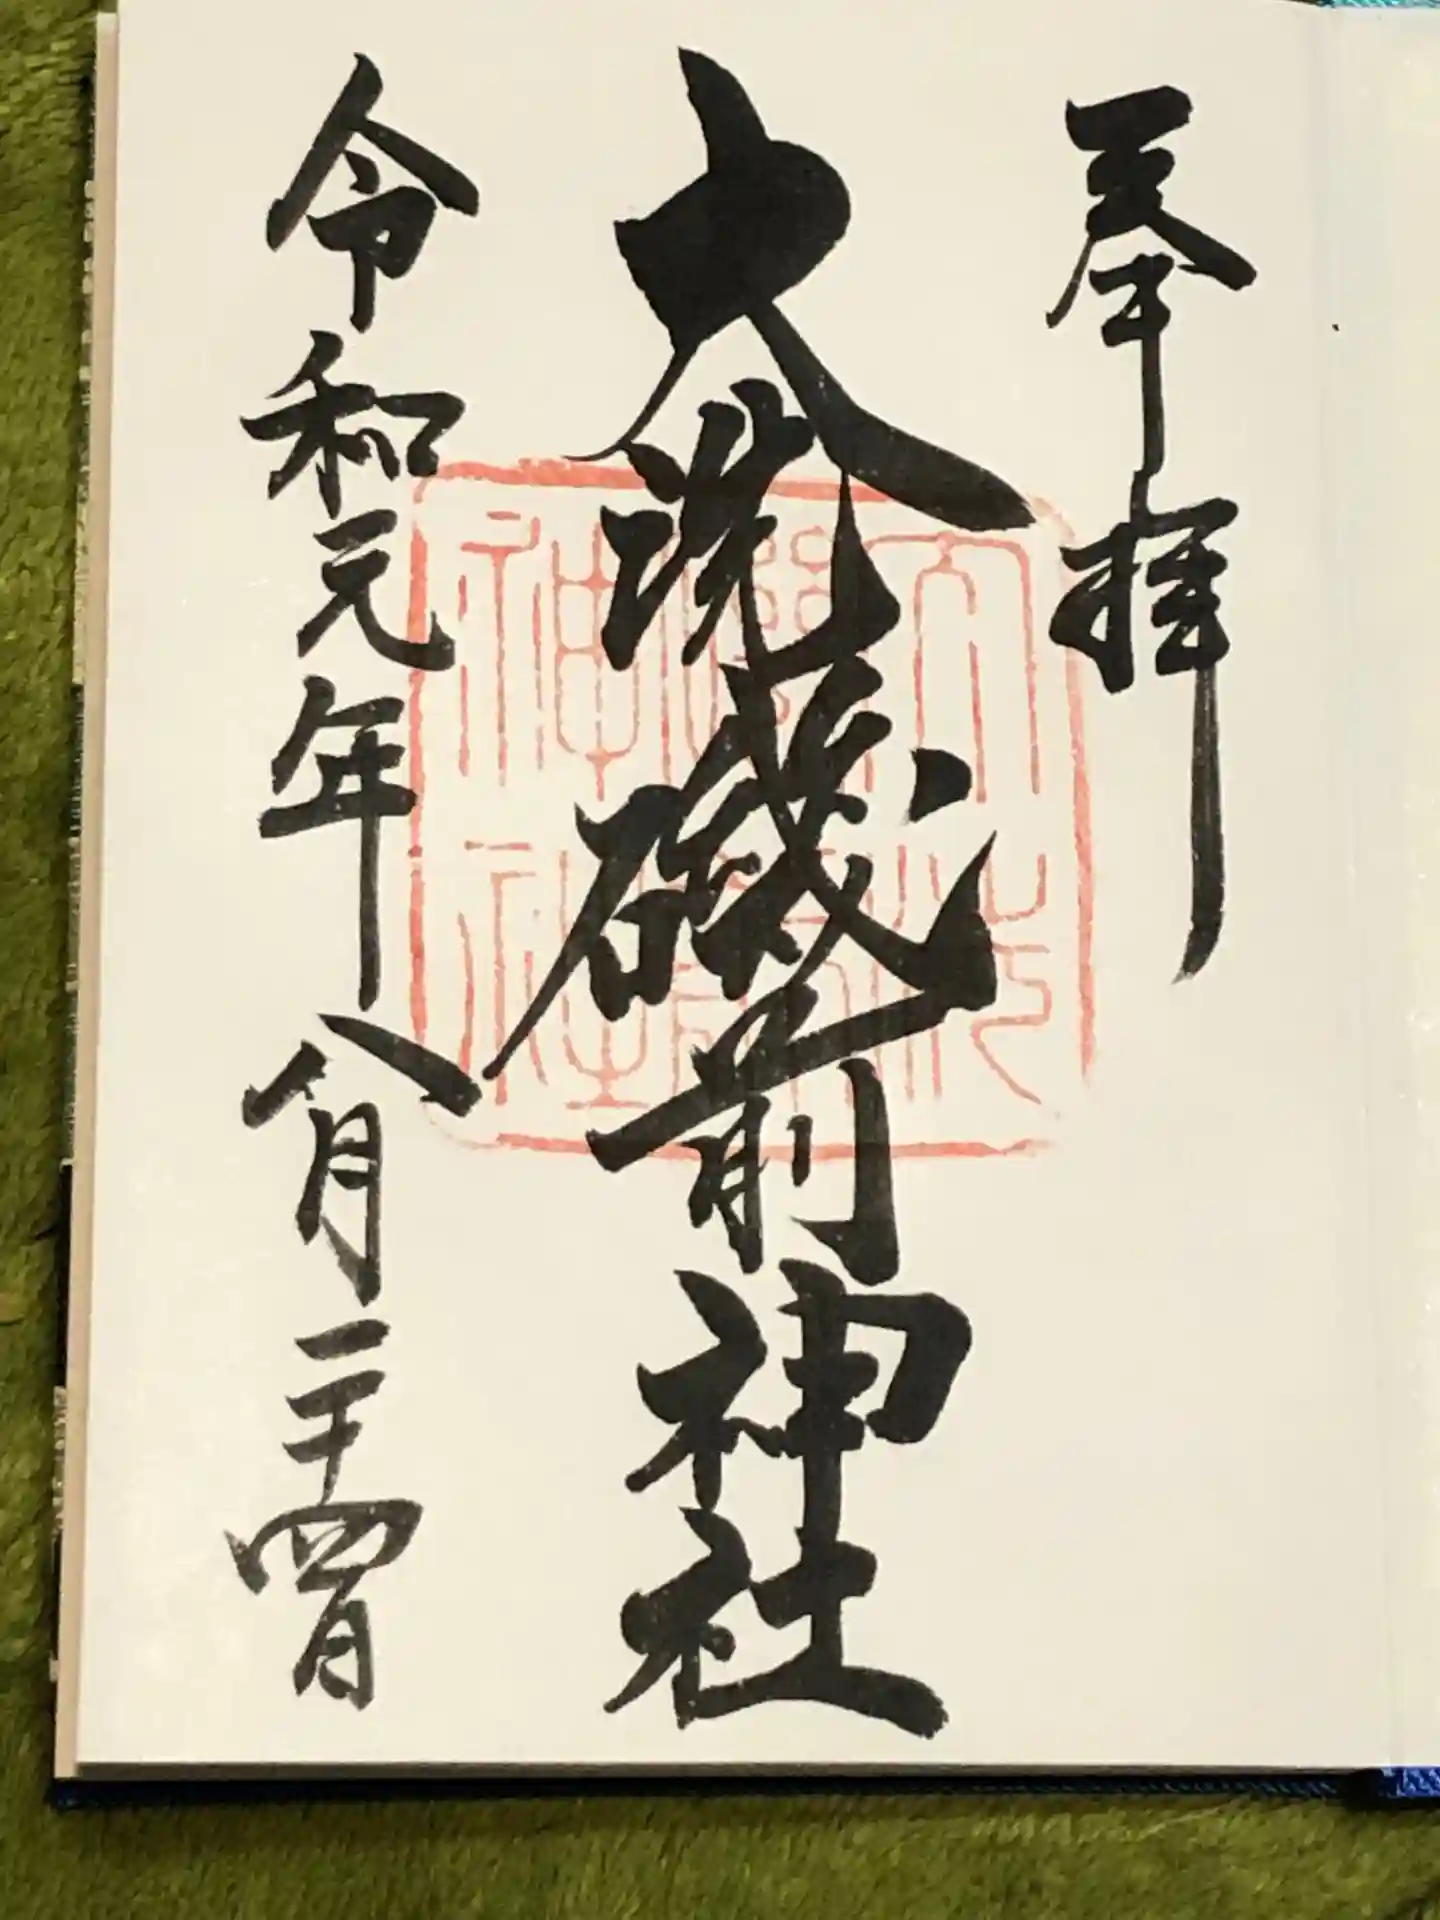 奉拝
大洗磯前神社
令和元年八月二十四日
大洗
磯前
神社